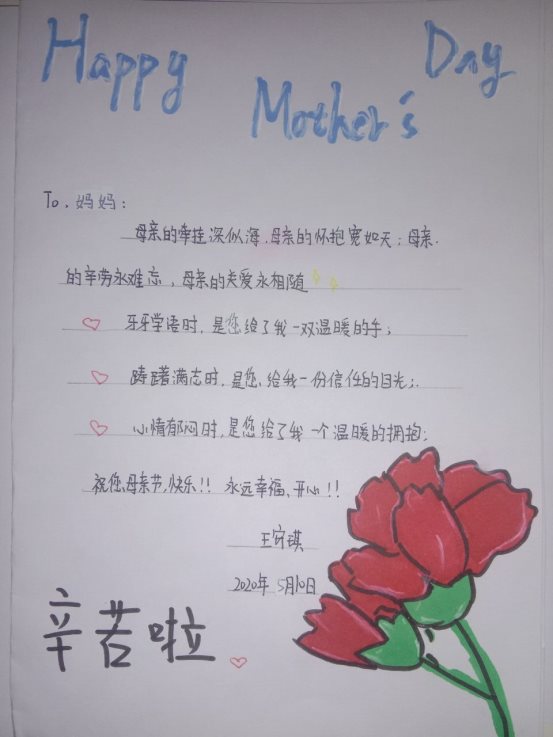 Happy Day
Mother's
To. 妈妈：
母亲的牵挂深似海,母亲的怀抱宽如天；母亲.
的辛劳永难忘，母亲的关爱永相随
牙牙学语时，是您给了我一双温暖的手；
踌躇满志时，是您,给我一份信任的目光；
心情郁闷时，是您给了我一个温暖的拥抱；
祝您,母亲节,快乐!! 永远幸福、开心!!
王安琪
2020年 5月10日
辛苦啦